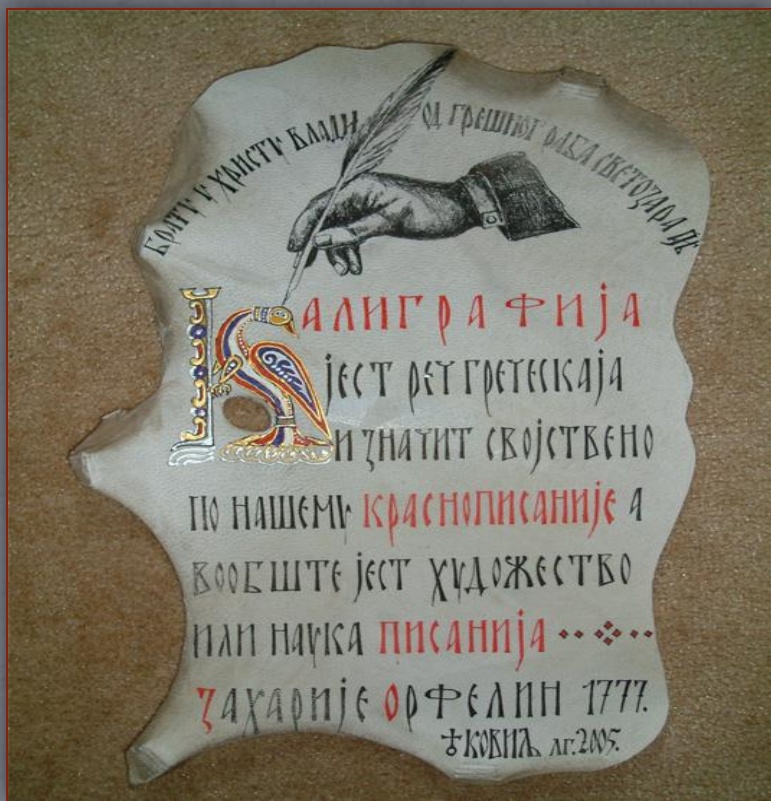 БРАТУ У ХРИСТУ ВЛАДИ ОД ГРЕШНОГ РАБА СВЕТОЗАРА
КАЛИГРАФИЈА
ЈЕСТ РЕЧ ГРЕЧЕСКАЈА
И ЗНАЧИТ СВОЈСТВЕНО
ПО НАШЕМУ КРАСНОПИСАНИЈЕ А
ВООБШТЕ ЈЕСТ ХУДОЖЕСТВО
ИЛИ НАУКА ПИСАНИЈА
ЗАХАРИЈЕ ОРФЕЛИН 1777.
КОВИЉ ЛГ. 2005.